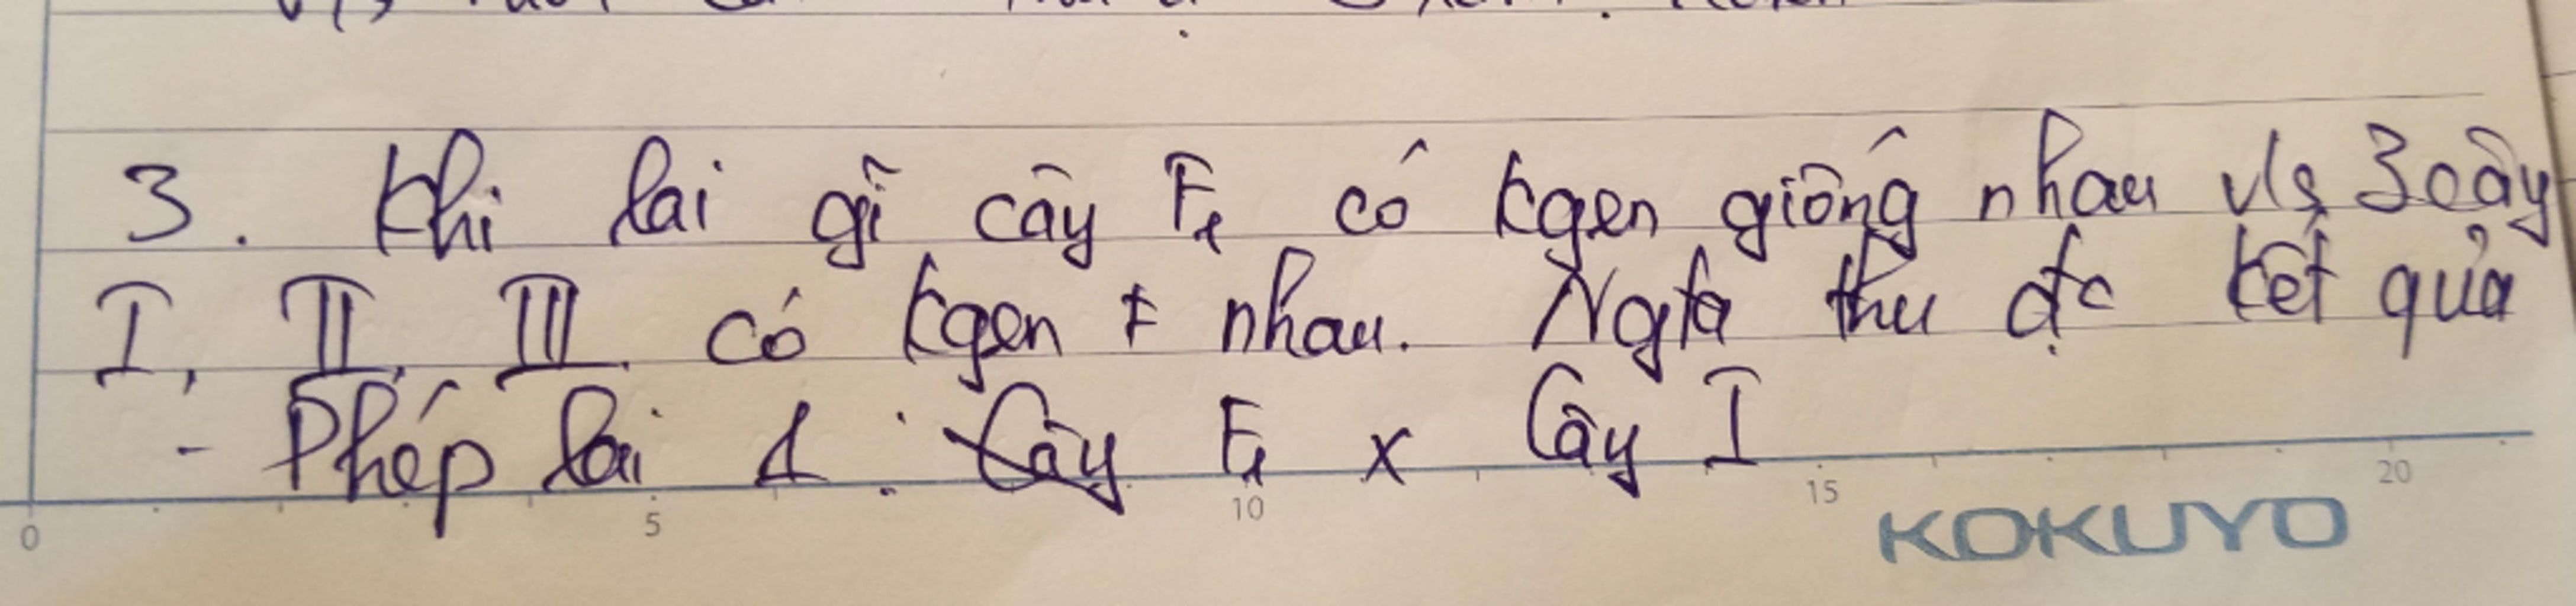 3. Khi lai gĩ cây F₁ có kgen giống nhau vs 3 cây
I, II, III có kgen ≠ nhau. Ngta thu đc kết quả
- Phép lai 1: Cây F₁ x Cây I
0 5 10 15 20
KOKUYO